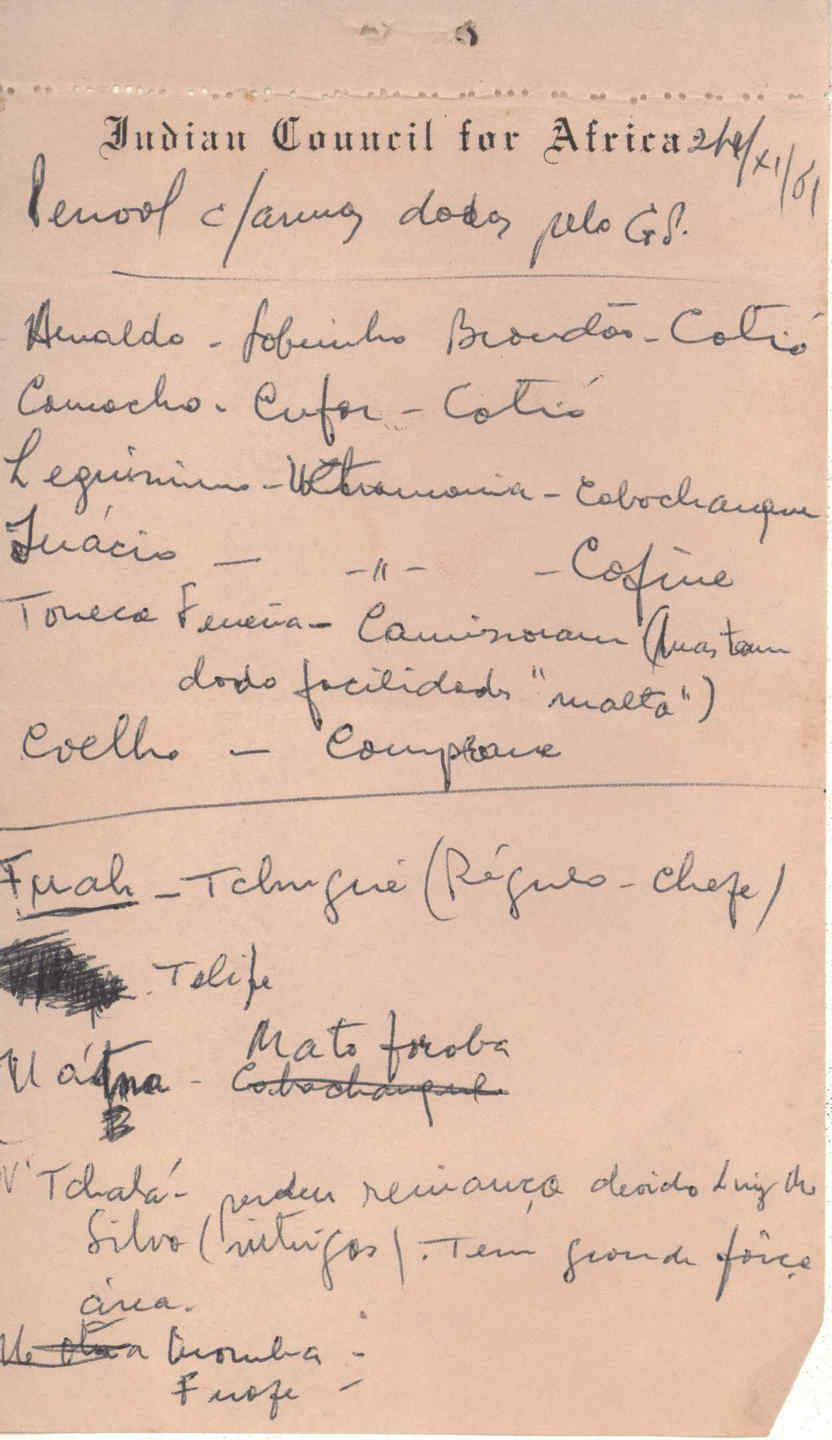 Indian Council for Africa 24/XI/61
Pessoal c/armas dadas pelo G.P.
Arnaldo - Sobrinho Brandão - Catió
Camacho - Cufar - Catió
Leguisimo - Ultramarina - Cabochanque
Inácio - -"- - Cafine
Toneca Ferreira - Camisoram (mas tem
dado facilidades "malta")
Coelho - Campeane
Fuah - Tchugué (Régulo - chefe)
Telife
Mato foroba
Na - Cabochanque
N'Tchalá - perdeu reinança devido Luiz da
Silva (intrigas). Tem grande força
área.
Fuofe -